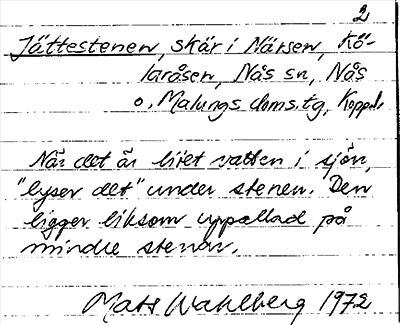 2
Jättestenen, skär i Närsen, Kö-
laråsen, Nås sn, Nås
o. Malungs doms.tg, Kopparb.
När det är litet vatten i sjön,
"lyser det" under stenen. Den
ligger liksom uppallad på
mindre stenar.
Mats Wahlberg 1972